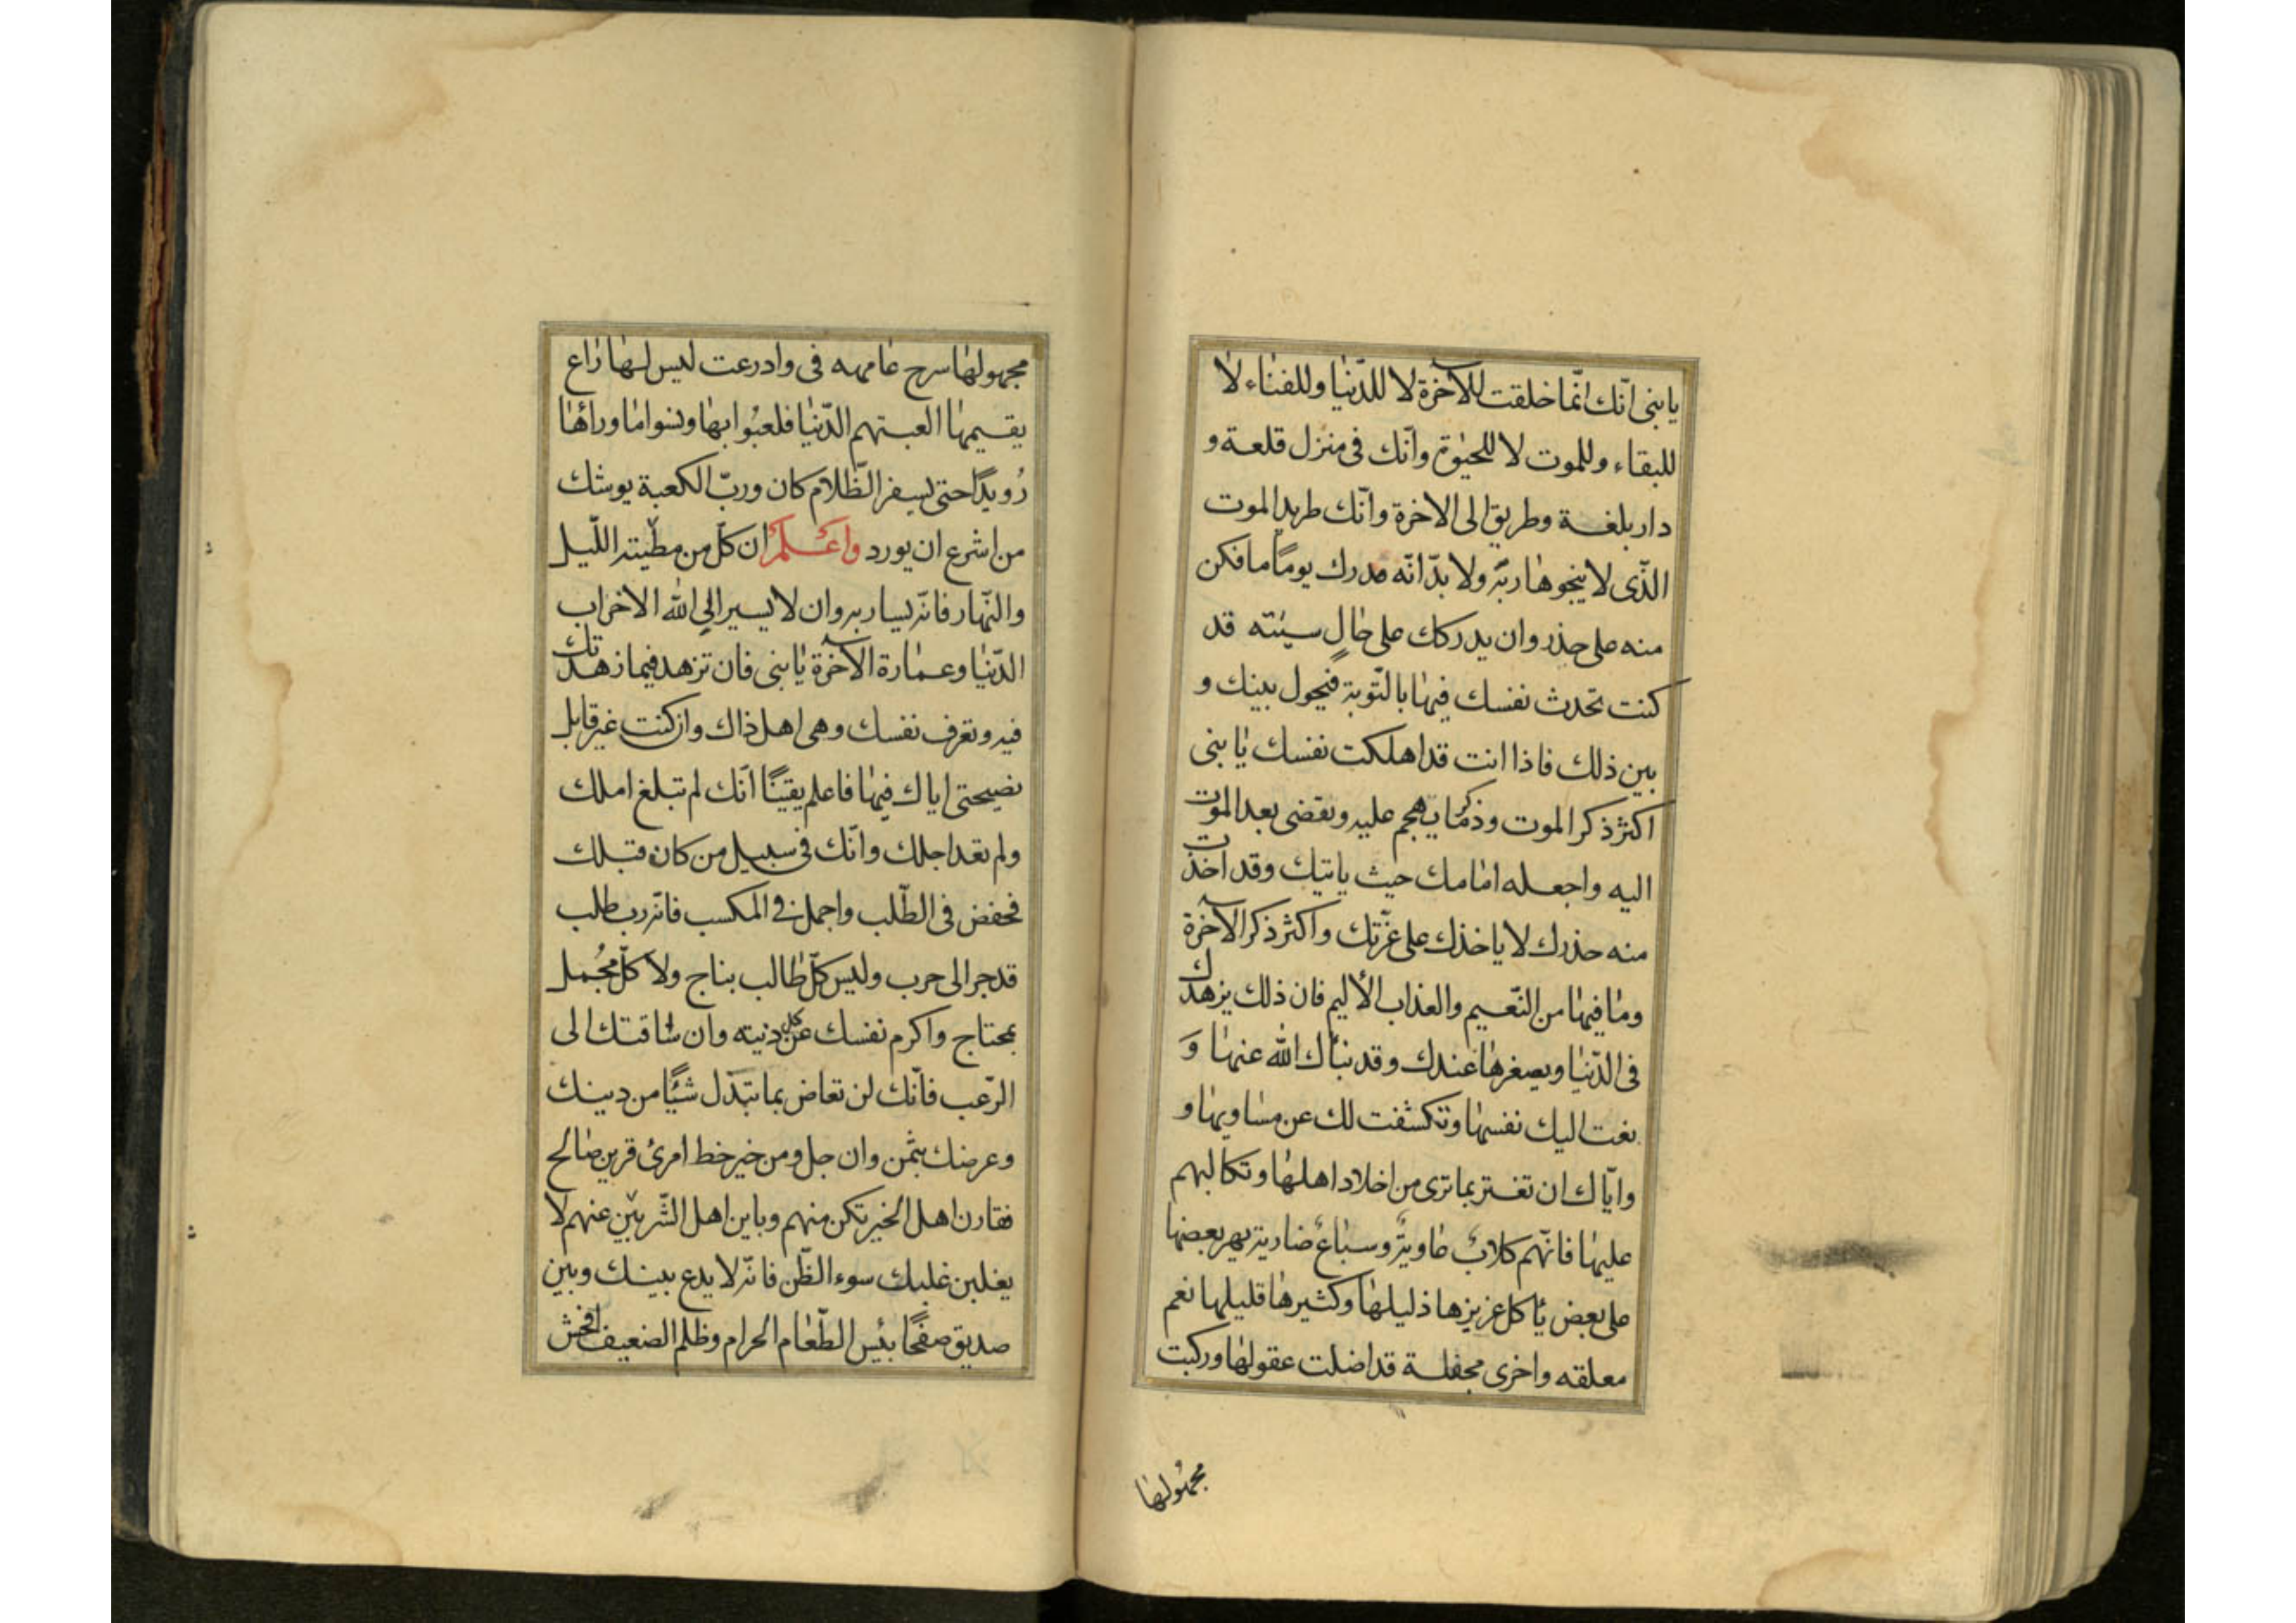 يا بنى انّك انّما خلقت للآخرة لا للدّنيا وللفناء لا
للبقاء وللموت لا للحيٰوة وانّك فى منزل قلعة و
دار بلغة وطريق الى الاخرة وانّك طريد الموت
الذّى لا ينجو هاربه ولا بدّ انّه مدرك يومًا ما فكن
منه على حذر وان يدركك على حالٍ سيئته قد
كنت تحدث نفسك فيها بالتّوبة فيحول بينك و
بين ذلك فاذا انت قد اهلكت نفسك يا بنى
اكثر ذكر الموت وذكر ما يهجم عليه وتقضى بعد الموت
اليه واجعله امامك حيث ياتيك وقد اخذت
منه حذرك لا ياخذك على غرّتك واكثر ذكر الآخرة
وما فيها من النّعيم والعذاب الأليم فان ذلك يزهدك
فى الدّنيا ويصغرها عندك وقد نبأك الله عنها وَ
نعت اليك نفسها وتكشفت لك عن مساويها و
وايّاك ان تغتر بما ترى من اخلاد اهلها وتكالبهم
عليها فانّهم كلابٌ عاويةٌ وسباعٌ ضارية يهر بعضها
على بعض يأكل عزيزها ذليلها وكثيرها قليلها نعم
معلقه واخرى مجفلة قد اضلت عقولها وركبت
مجهولها
مجهولها سرح عامهه فى واد رعت ليس لها راع
يقيمها العبتهم الدّنيا فلعبُوا بها ونسوا ما ورائها
رُويدًا حتى يسفر الظّلام كان وربّ الكعبة يوشك
من اشرع ان يورد واعلم ان كلّ من مطيّته اللّيل
والنّهار فانّه يسار به وان لا يسير الى الله الا خراب
الدّنيا وعمارة الآخرة يا بنى فان تزهد فيما زهدتك
فيه وتعرف نفسك وهى اهل ذاك وان كنت غير قابل
نصيحتى اياك فيها فاعلم يقينًا انّك لم تبلغ املك
ولم تعد اجلك وانّك فى سبيل من كان قبلك
فحفض فى الطّلب واجمل فى المكسب فانّه رب طلب
قد جر الى حرب وليس كلّ طالب بناج ولا كلّ مجُمل
بمحتاج واكرم نفسك عن كل دنيته وان ساقتك الى
الرّعب فانّك لن تعاض بما تبذّل شيًا من دينك
وعرضك بثمن وان جل ومن خير خط امرئ قرين صالح
فقارن اهل الخير تكن منهم وباين اهل الشّر تبيّن عنهم لا
يغلبن غلبك سوء الظّن فانّه لا يدع بينك وبين
صديق صفحًا بئس الطّعام الحرام وظلم الضعيف افحش